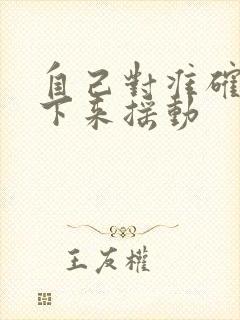 自己對准確
下來搖動
王友權